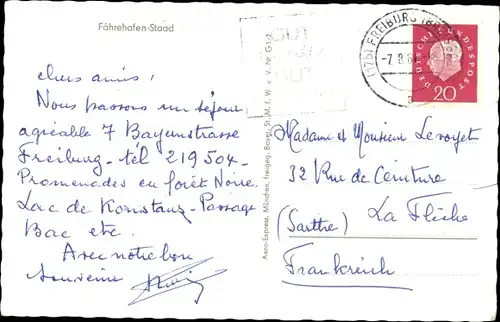 Fährehafen-Staad
chers amis !
Nous passons un séjour
agréable 7 Bayernstrasse
Freiburg - tel 219504 -
Promenades en forêt Noire.
Lac de Konstanz - Passage
Bac etc.
Avec notre bon
souvenir
Aero-Express, München, Freigeg. Bayer. St. M. f. W. u. V. Nr. G
(17b) FREIBURG (BR
-7.8.6
a
DEUTSCHE BUNDESPOST
20
Madame et Monsieur Levoyet
32 Rue de Ceinture
La Flèche
(Sarthe)
Frankreich